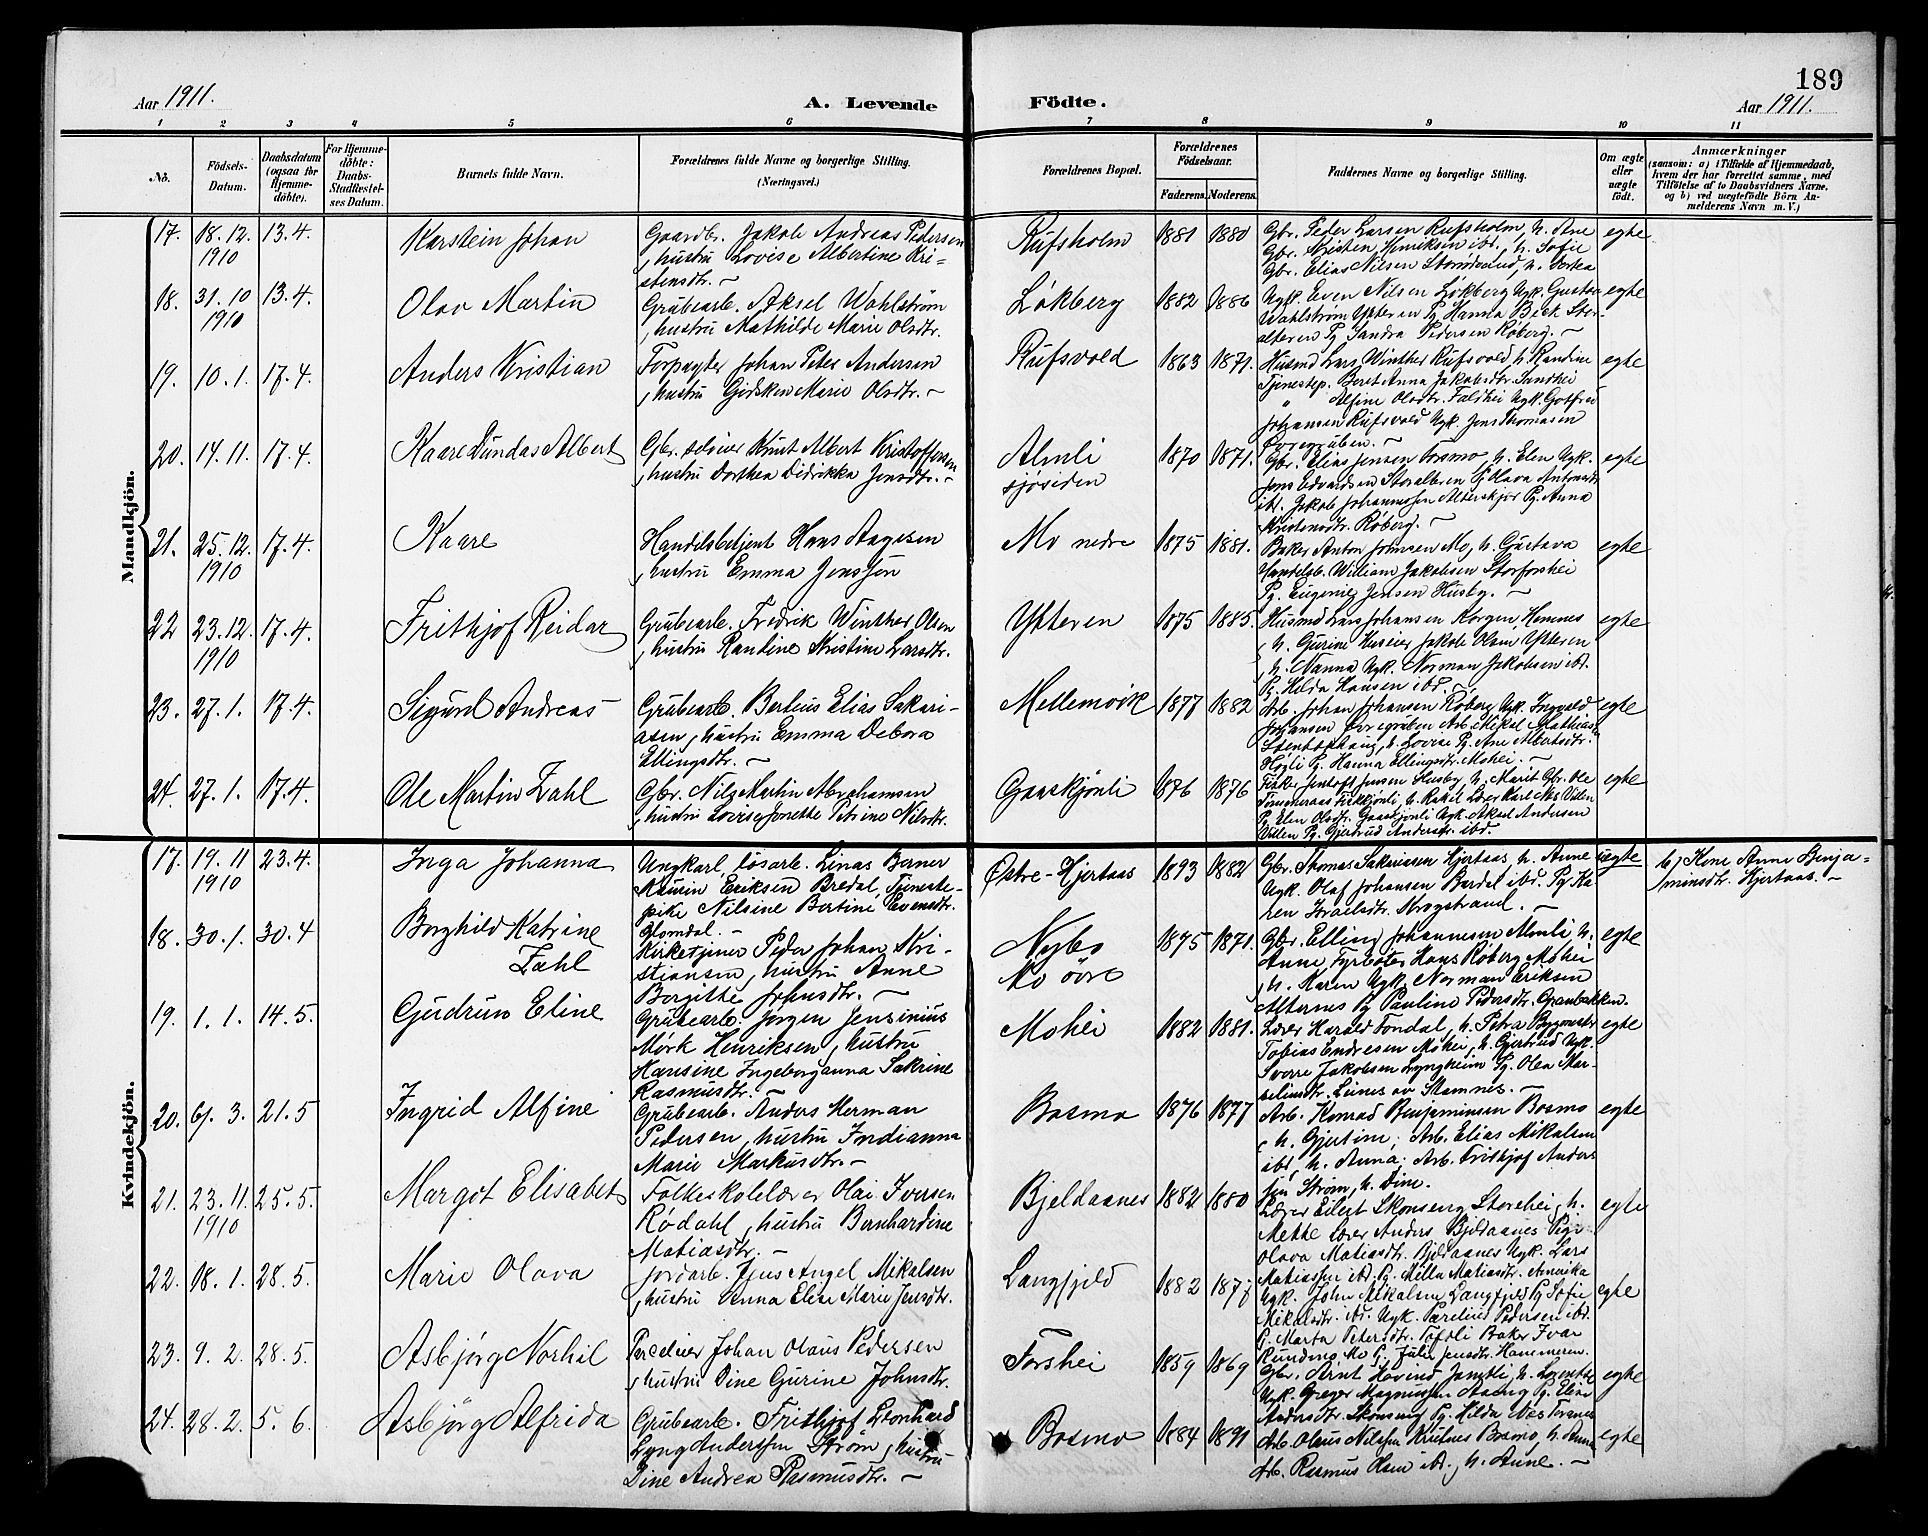 189
Aar 1911.
A. Levende Födte.
Aar 1911.
1 2 3 4 5 6 7 8 9 10 11
No.
Födsels-Datum.
Daabsdatum (ogsaa for Hjemmedöbte).
For Hjemmedöbte: Daabs-Stadfæstelses Datum.
Barnets fulde Navn.
Forældrenes fulde Navne og borgerlige Stilling. (Næringsvei.)
Forældrenes Bopæl.
Forældrenes Födselsaar.
Faderens. Moderens.
Faddernes Navne og borgerlige Stilling.
Om ægte eller uægte födt.
Anmærkninger
(saasom: a) i Tilfælde af Hjemmedaab, hvem der har forrettet samme, med Tilföielse af to Daabsvidners Navne, og b) ved uægtefödte Börn Anmelderens Navn m. V.)
Mandkjön.
17. 18.12. 1910 13.4. Karstein Johan
Gaardbr. Jakob Andreas Pedersen
, hustru Lovise Albertine Kri-
stensdtr. –
Rufsholm 1881 1880
Gbr. Peder Larsen Rufsholm, h. Ane
Gbr. Kristen Henriksen ibd., h. Sofie
Gbr. Elias Nilsen
egte
18. 31.10 1910 13.4. Olav Martin
Grubearb. Aksel Wahlström
, hustru Mathilde Marie Olsdtr.
Lökberg 1882 1886
Ugk. Even Nilsen Lökberg Ugk. Gustav
Wahlström Ytteren Pg. Hanna Bech Stor-
alteren Pg. Sandra Pedersen Röberg. –
egte
19. 10.1. 17.4. Anders Kristian
Forpagter Johan Peter Andersen
, hustru Gjertken Marie Olsdtr. –
Rufsvold 1863 1871.
Husmd Lars Winther Rufsvold, h. Randine
Tjenestep. Beret Anna Jakobsdtr. Sandhei
" Alfine Olsdtr. Ugk. Gotfred
Johansen Rufsvold Ugk. Jens Thomasen
Övregruben. –
egte
20. 14.11. 17.4. Kaare Dundas Albert
Gbr. Knut Albert Kristoffersen
, hustru Dorthea Didrikka Jensdtr. –
Almli
sjösiden
1870 1871.
Gbr. Elias Jensen Bosmo, h. Elen Ugk.
Jens Edvardsen Storalteren Pg. Olava Antonsdtr
ibd. Jakob Johannesen Alterskjær Pg. Anna
Kristensdtr. Röberg. –
egte
21. 25.12. 1910 17.4. Kaare
Handelsbetjent Hans Aagesen
, hustru Emma Jenssen
Mo nedre 1875 1881.
Baker Anton Johnsen Mo, h. Gustava
Handelsb. William Jakobsen Storforshei
Pg. Eugenie Jensen Husby. –
egte
22 23.12. 1910 17.4. Frithjof Reidar
Grubearb. Fredrik Winther Olsen
, hustru Randine Kristine Larsdtr.
Ytteren 1875 1885.
Husmd Lars Johansen Korgen Hemnes
, h. Gurine Huseier Jakob Olsen Ytteren
, h. Nanna Ugk. Norman Jakobsen ibd.
Pg. Hilda Hansen ibd. –
egte
23. 27.1. 17.4. Sigurd Andreas
Grubearb. Bertius Elias Sakari-
asen, hustru Emma Debora
Ellingsdtr. –
Mellemvik 1877 1882
Arb. Johan Johansen Röberg Ugk. Ingvald
Johansen Övregruben Arb. Mikal Mathias.
h. Lovise Pg. Ane Albertsdtr.
Högli Pg. Hanna Ellingsdtr. Mohei. –
egte
24. 27.1. 17.4. Ole Martin Zahl
Gbr. Nils Martin Abrahamsen
, hustru Lovise Jonette Petrine Nilsdtr.
Gaaskjönli 1876 1876
Fisker Jentoft Jensen Husby h. Marit Gbr. Ole
h. Rakel Lærer Karl
Pg. Elen Olsdtr. Gaaskjönli Ugk. Aksel Andersen
Pg. Gjertrud Andersdtr. ibd.
egte
Kvindekjön.
17. 19.11 1910 23.4. Inga Johanna
Ungkarl, lösarb. Linas Berner
Eriksen Bredal, Tjeneste-
pike Nilsine Bertine Evensdtr.
Glomdal. –
Östre-Hjertaas 1893 1882
Gbr. Thomas Sakariassen Hjertaas, h. Anne
Ugk. Olaf Johansen Bardal ibd. Pg. Ka-
ren Israelsdtr. Krogstrand. –
uegte
b, Kone Anne Benja-
minsdtr. Hjertaas. –
18. 30.1. 30.4 Borghild Katrine
Zahl
Kirketjener Peder Johan Kri-
stiansen, hustru Anne
Bergitte Johnsdtr. –
Nybo
Mo övre
1875 1871.
Gbr. Elling Johannesen Almli h.
Anne Fyrböter Hans Röberg Mohei
, h. Karen Ugk. Norman Eriksen
Alternes Pg. Pauline Pedersdtr. Granbakken.
egte
19. 1.1. 14.5. Gudrun Eline
Grubearb. Jörgen Jensinius
Mörk Henriksen, hustru
Hansine Ingeborganna Sakrine
Rasmusdtr. –
Mohei 1882 1881.
Lærer Harald Tondal, h. Petra Bygmester
Tobias Endresen Mohei, h. Gjertrud Ugk.
Sverre Jakobsen Lyngheim Pg. Olea Mar-
selinsdtr. Leines av Stamnes. –
egte
20. 6/. 3. 21.5 Ingrid Alfine
Grubearb. Anders Herman
Pedersen, hustru Indianna
Marie Markusdtr. –
Bosmo 1876 1877
Arb. Konrad Benjaminsen Bosmo
, h. Gjertine. Arb. Elias Mikalsen
ibd, h. Anna. Arb. Frithjof Anders
sen Ström, h. Dine.
egte
21. 23.11. 1910 25.5. Margot Elisabet
Folkeskolelærer Olai Iversen
Rödahl, hustru Bernhardine
Matiasdtr. –
Bjeldaanes 1882 1880
Lærer Eilert Skonseng Storhei, h.
Mette Lærer Anders Bjeldaanes Pige
Olava Matiasdtr. Bjeldaanes Ugk. Lars
Matiassen ibd. Pg. Milla Matiasdtr. Amerika
egte
22. 18.1. 28.5. Marie Olava
Jordarb. Jens Angel Mikalsen
, hustru Anna Elise Marie Jensdtr.
Langfjeld 1882 1877
Ugk. John Mikalsen Langfjeld Pg Sofie
Mikalsdtr. ibd. Ugk. Parelius Pedersen ibd.
Pg. Marta Petersdtr. Baker Ivar
Mo Pg. Julie Jensdtr. Hammeren.
egte
23. 9.2. 28.5. Asbjörg Norhil
Parceleier Johan Olaus Pedersen
, hustru Dine Gurine Johnsdtr.
Forshei 1859 1869
Gbr. Arnt Hovind Jamtli, h. Lorentse
Ugk. Greger Magnussen Aaeng Pg. Elise
Andersdtr. Skonseng Pg. Hilda
egte
24. 28.2. 5.6. Asbjörg Alfrida
Grubearb. Frithjof Leonhard
Lyng Anderssen Ström, hustru
Dine Andrea Rasmusdtr. –
Bosmo 1884 1891
Arb. Olaus Nilsen Bosmo, h. Anna
Arb. Rasmus Olsen ibd., h. Anne. –
egte